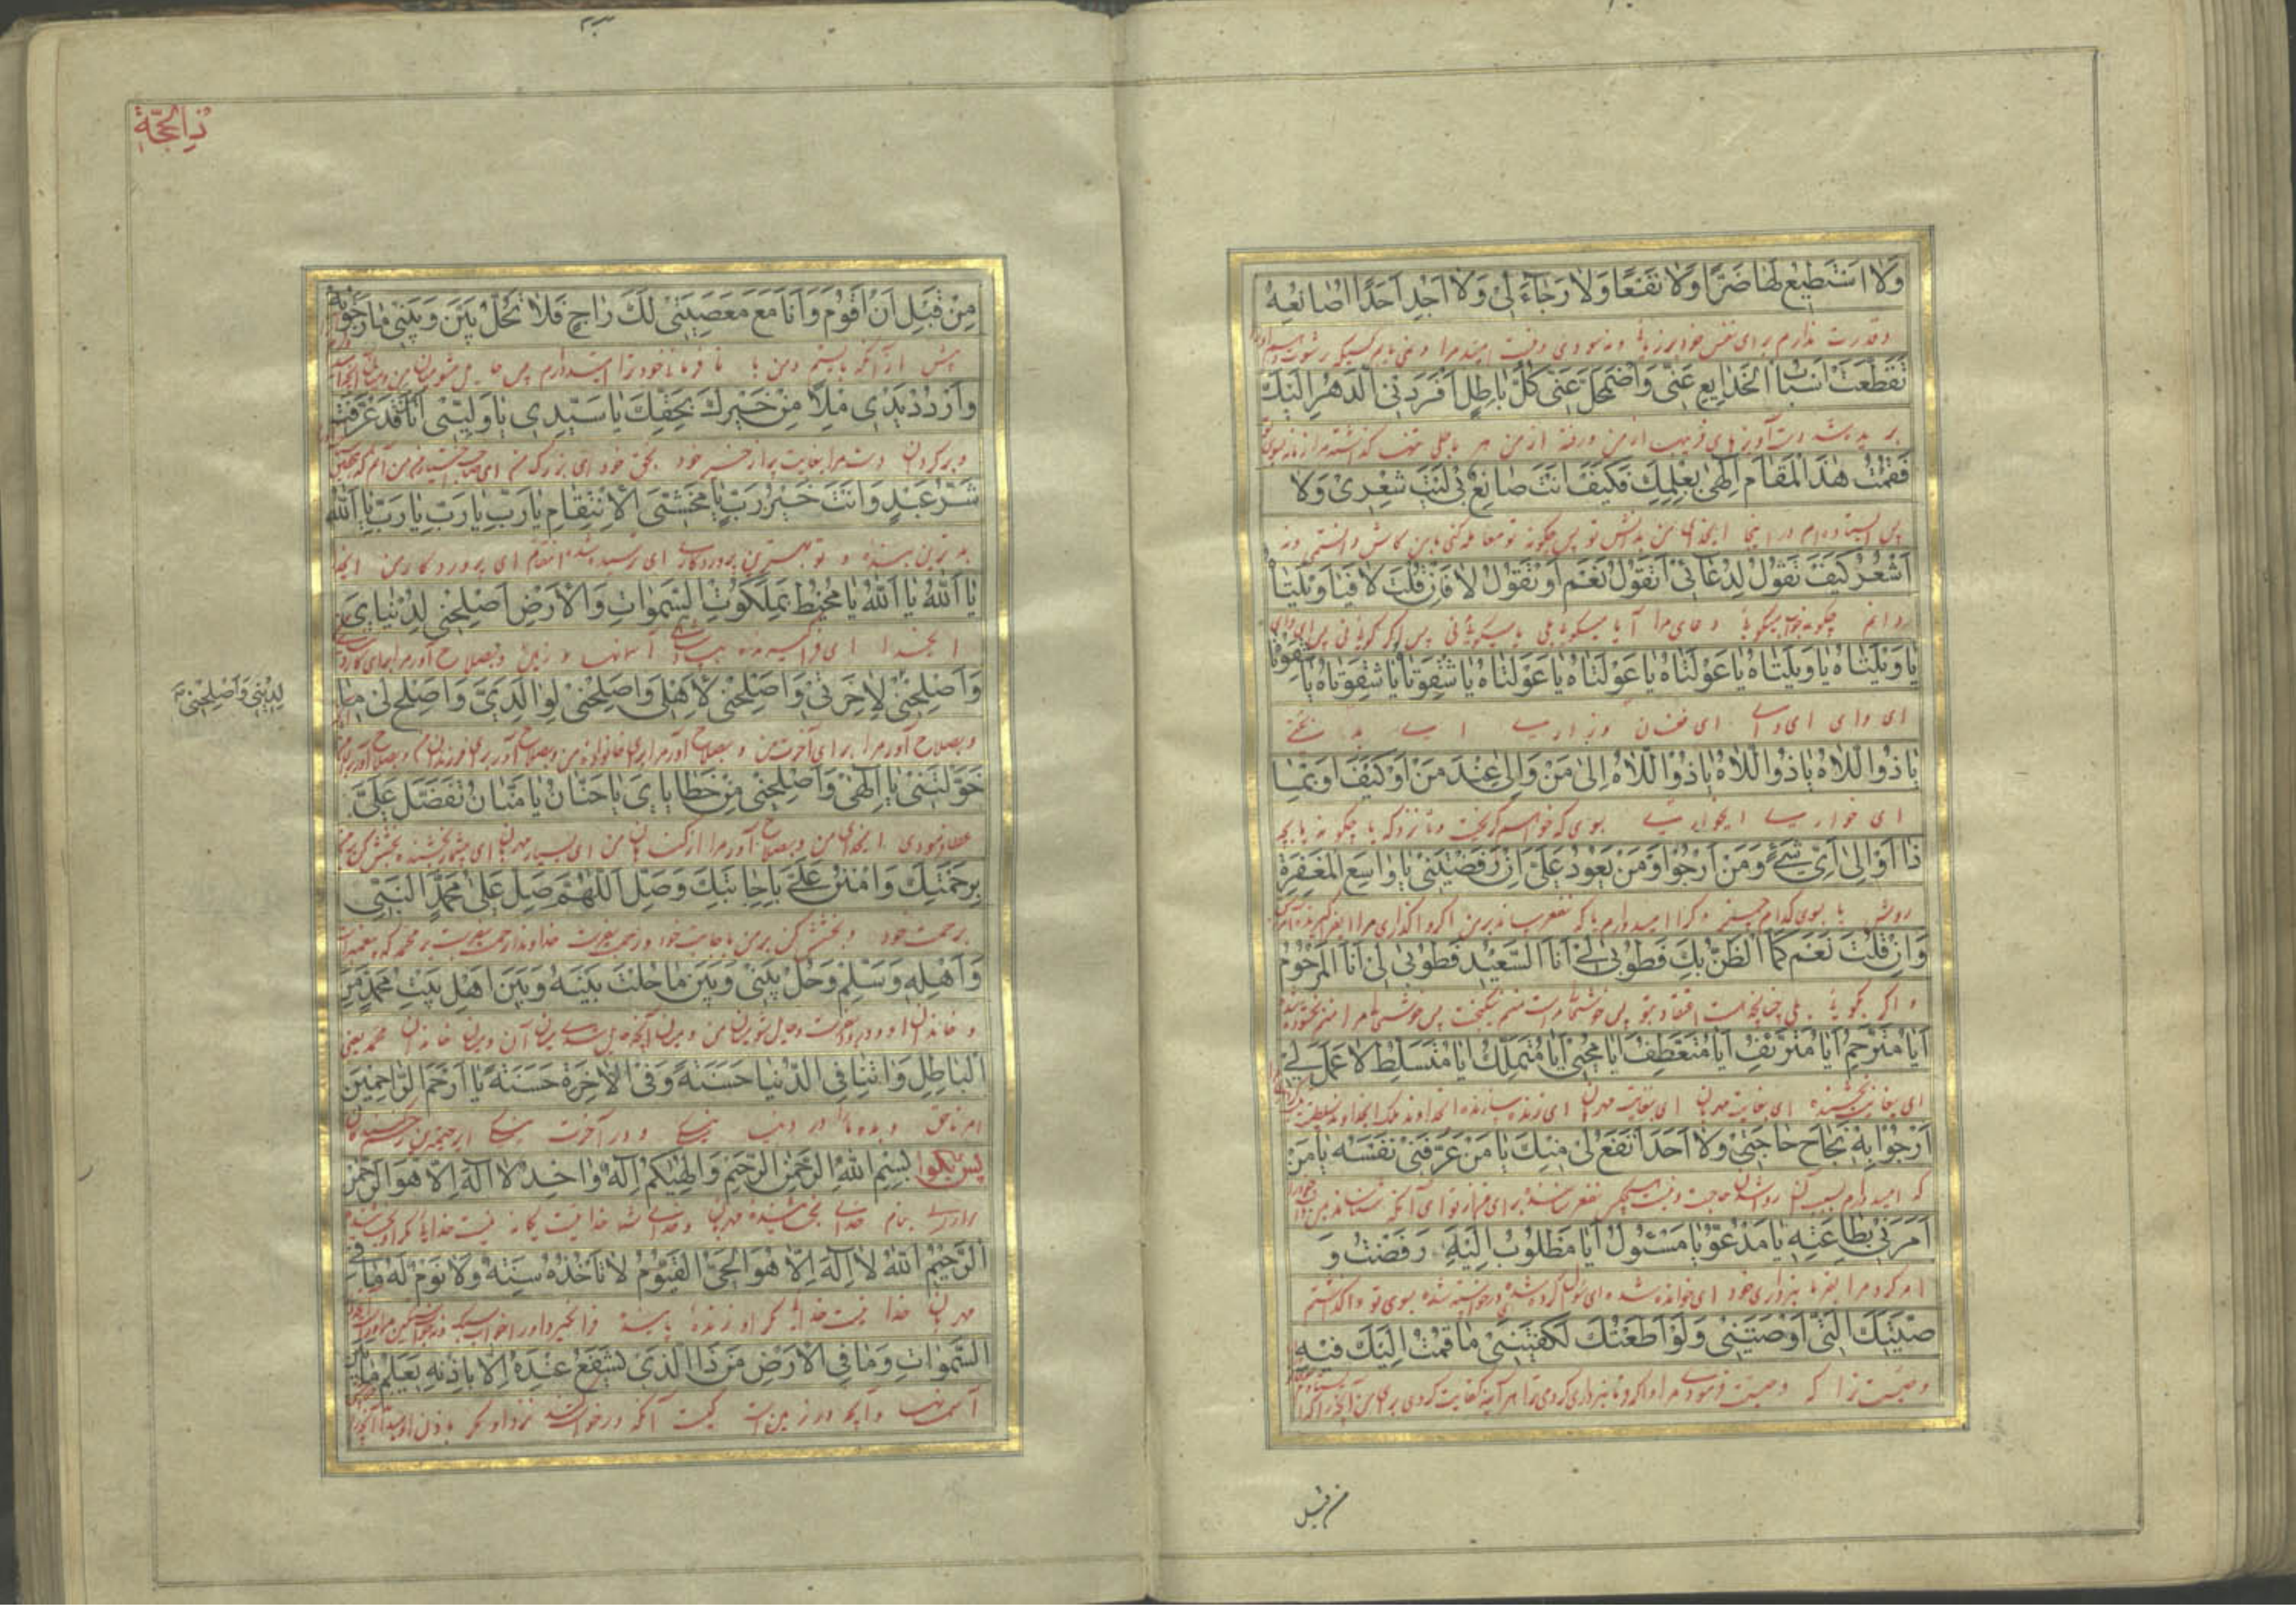 وَلَا اَسْتَطِيعُ لَهَا ضَرًّا وَلَا نَفْعًا وَلَا رَجَاءَ لِي وَلَا اَجِدُ اَحَدًا اُصَانِعُهُ
و قدرت ندارم برای نفس خود بر زیان و نه سودی و نیست امید مرا و نمی یابم کسیکه رشوت دهم او را
تَقَطَّعَتْ اَسْبَابُ الْخَدَايِعِ عَنِّي وَاضْمَحَلَّ عَنِّي كُلُّ بَاطِلٍ اَفْرَدَنِي الدَّهْرُ اِلَيْكَ
بریده شد دست آویزهای فریب از من و رفته از من هر باطلی تنها گذاشته مرا زمانه بسوی تو
فَقُمْتُ هٰذَا الْمَقَامَ اِلٰهِي بِعِلْمِكَ فَكَيْفَ اَنْتَ صَانِعٌ بِي لَيْتَ شِعْرِي وَلَا
پس ایستاده‌ام در اینجا ایخدای من بدانش تو پس چگونه تو معامله کنی با من کاش دانستمی و نه
اَشْعُرُ كَيْفَ تَقُولُ لِدُعَائِي اَتَقُولُ نَعَمْ اَوْ تَقُولُ لَا فَاِنْ قُلْتَ لَا فَيَا وَيْلَتَاهُ
دانم چگونه میگویی دعای مرا آیا میگویی بلی یا میگویی نی پس اگر گویی نی پس ای وای
يَا وَيْلَتَاهُ يَا وَيْلَتَاهُ يَا عَوْلَتَاهُ يَا عَوْلَتَاهُ يَا عَوْلَتَاهُ يَا شِقْوَتَا يَا شِقْوَتَاهُ يَا شِقْوَتَا
ای وای ای وای ای فغان و زاری ای بد بختی
يَا ذُلَّاهُ يَا ذُلَّاهُ يَا ذُلَّاهُ اِلَى مَنْ وَاِلَى عِنْدَ مَنْ اَوْ كَيْفَ اَوْ بِمَا
ای خواری ایخواری بسوی که خواهم گریخت و تا نزد که یا چگونه یا بچه
ذَا اَوْ اِلَى اَيِّ شَيْءٍ وَمَنْ اَرْجُو اَوْ مَنْ يَعُودُ عَلَيَّ اِنْ رَفَضْتَنِي يَا وَاسِعَ الْمَغْفِرَةِ
روش یا بسوی کدام چیز و کرا امیدوارم یا که نفع رساند بر من اگر واگذاری مرا ای
وَاِنْ قُلْتَ نَعَمْ كَمَا الظَّنُّ بِكَ فَطُوبٰى لِي اَنَا السَّعِيدُ فَطُوبٰى لِي اَنَا الْمَرْحُومُ
و اگر گویی بلی چنانچه هست اعتقاد بتو پس خوشا مراست منم نیکبخت پس خوشی مرا منم بخشوده شده
اَيَا مُتَرَحِّمُ اَيَا مُتَرَئِّفُ اَيَا مُتَعَطِّفُ اَيَا مُحْيِي اَيَا مُتَمَلِّكُ اَيَا مُتَسَلِّطُ لَا عَمَلَ لِي
ای بغایت بخشنده ای بغایت مهربان ای بغایت مهربان ای زنده سازنده ایخداوند ملک ایخداوند سلطنت
اَرْجُو بِهِ نَجَاحَ حَاجَتِي وَلَا اَحَدَ اَنْفَعُ لِي مِنْكَ يَا مَنْ عَرَّفَنِي نَفْسَهُ يَا مَنْ
که امیدوارم بسبب آن روا شدن حاجت و نیست هیچکس نفع رساننده برای من از تو ای آنکه شناساند بمن خود را
اَمَرَنِي بِطَاعَتِهِ يَا مَدْعُوُّ يَا مَسْئُولُ اَيَا مَطْلُوبُ اِلَيْهِ رَفَضْتُ وَ
امر کرد مرا بفرمانبرداری خود ای خوانده شده ای سئوال کرده شده ای درخواسته شده بسوی تو واگذاشتم
صِيَّتَكَ الَّتِي اَوْصَيْتَنِي وَلَوْ اَطَعْتُكَ لَكَفَيْتَنِي مَا قُمْتُ اِلَيْكَ فِيهِ
وصیت ترا که وصیت فرمودی مرا و اگر فرمانبرداری کردمی ترا هر آینه کفایت کردی برای من آنچه را که
من قبل
ذِالحَجَّة
مِنْ قَبْلِ اَنْ اَقُومَ وَاَنَا مَعَ مَعْصِيَتِي لَكَ رَاجٍ فَلَا تَحُلْ بَيْنِي وَبَيْنَ مَا رَجَوْتُهُ
پیش از آنکه بایستم و من با نافرمانی خود ترا امیدوارم پس حایل مشو میان من و میان آنچه
وَارْدُدْ يَدِي مَلْأً مِنْ خَيْرِكَ بِحَقِّكَ يَا سَيِّدِي يَا وَلِيِّي اَنَا قَدْ عَرَفْتَ
و برگردان دست مرا بغایت پر از خیر خود بحق خود ای بزرگ من ای صاحب اختیار من من آنم که
شَرُّ عَبْدٍ وَاَنْتَ خَيْرُ رَبٍّ يَا مَخْشِيَّ الْاِنْتِقَامِ يَا رَبِّ يَا رَبِّ يَا رَبِّ يَا اَللهُ
بدترین بنده و تو بهترین پروردگار ای ترسیده شده انتقام ای پروردگار من ایخدا
يَا اَللهُ يَا اَللهُ يَا مُحِيطُ بِمَلَكُوتِ السَّمٰوَاتِ وَالْاَرْضِ اَصْلِحْنِي لِدُنْيَايَ
ایخدا ای فراگیرنده بپادشاهی آسمانها و زمین و بصلاح آور مرا برای
وَاَصْلِحْنِي لِاٰخِرَتِي وَاَصْلِحْنِي لِاَهْلِي وَاَصْلِحْنِي لِوَالِدَيَّ وَاَصْلِحْ لِي مَا
لِدِينِي وَاَصْلِحْنِي
و بصلاح آور مرا برای آخرت من و بصلاح آور مرا برای خانواده من و بصلاح آور برای فرزندان من و بصلاح آور برای
خَوَّلْتَنِي يَا اِلٰهِي وَاَصْلِحْنِي مِنْ خَطَايَايَ يَا حَنَّانُ يَا مَنَّانُ تَفَضَّلْ عَلَيَّ
عطا فرمودی ایخدای من و بصلاح آور مرا از گناهان من ای بسیار مهربان ای بسیار بخشنده بخشش کن بر من
بِرَحْمَتِكَ وَامْنُنْ عَلَيَّ بِاِجَابَتِكَ وَصَلِّ اَللّٰهُمَّ صَلِّ عَلَى مُحَمَّدٍ النَّبِيِّ
برحمت خود و بخشش کن بر من باجابت خود و رحمت بفرست خداوندا رحمت بفرست بر محمد که پیغمبر است
وَاَهْلِهِ وَسَلِّمْ وَحُلْ بَيْنِي وَبَيْنَ مَا حُلْتَ بَيْنَهُ وَبَيْنَ اَهْلِ بَيْتِ مُحَمَّدٍ مِنَ
و خاندان او و درود بفرست و حایل شو میان من و میان آنچه حایل شدی میان آن و میان خاندان محمد یعنی
الْبَاطِلِ وَاٰتِنَا فِي الدُّنْيَا حَسَنَةً وَفِي الْاٰخِرَةِ حَسَنَةً يَا اَرْحَمَ الرَّاحِمِينَ
امر ناحق و بده ما را در دنیا نیکی و در آخرت نیکی ای رحیم‌ترین رحم کنندگان
پس بگو بِسْمِ اللهِ الرَّحْمٰنِ الرَّحِيمِ وَاِلٰهُكُمْ اِلٰهٌ وَاحِدٌ لَا اِلٰهَ اِلَّا هُوَ الرَّحْمٰنُ
بنام خدای بخشنده مهربان و خدای شما خدائیست یگانه نیست خدایی مگر او بخشنده
الرَّحِيمُ اَللهُ لَا اِلٰهَ اِلَّا هُوَ الْحَيُّ الْقَيُّومُ لَا تَأْخُذُهُ سِنَةٌ وَلَا نَوْمٌ لَهُ مَا فِي
مهربان خدا نیست خدایی مگر او زنده پاینده فرا نگیرد او را خواب سبک و نه خواب سنگین مر او راست
السَّمٰوَاتِ وَمَا فِي الْاَرْضِ مَنْ ذَا الَّذِي يَشْفَعُ عِنْدَهُ اِلَّا بِاِذْنِهِ يَعْلَمُ مَا بَيْنَ
آسمانها و آنچه در زمین است کیست آنکه درخواست کند نزد او مگر باذن او میداند آنچه